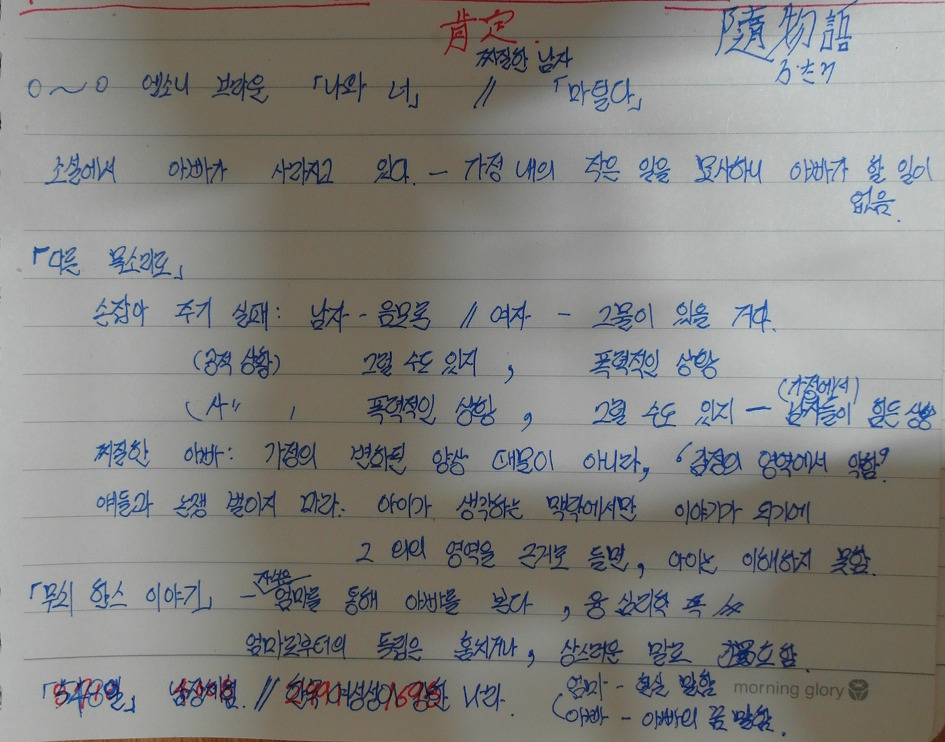 肯定.
物語
찌질한 남자
0~0 엔소니 브라운 「나와 너」 // 「마틸다」
소설에서 아빠가 사라지고 있다. - 가정 내의 작은 일을 묘사하니 아빠가 할 일이
없음.
「다른 목소리로」
손잡아 주기 실패: 남자 - 음모론 // 여자 - 그물이 있을 거다.
(공적 상황) 그럴 수도 있지, 폭력적인 상황
(가정에서)
(사 〃 , 폭력적인 상황, 그럴 수도 있지 - 남자들이 힘든 상황
찌질한 아빠: 가정의 변화된 양상 때문이 아니라, '감정의 영역에서 약함?
애들과 논쟁 벌이지 마라. 아이가 생각하는 맥락에서만 이야기가 되기에
그 외의 영역을 근거로 들면, 아이는 이해하지 못함.
자식은
「무쇠 한스 이야기」 - 엄마를 통해 아빠를 본다, 융 심리학 쪽
엄마로부터의 독립은 훔치거나, 상스러운 말로 獨立함.
엄마 - 현실 말함 morning glory
// 한국 여성성이 강한 나라. (아빠 - 아빠의 꿈 말함.